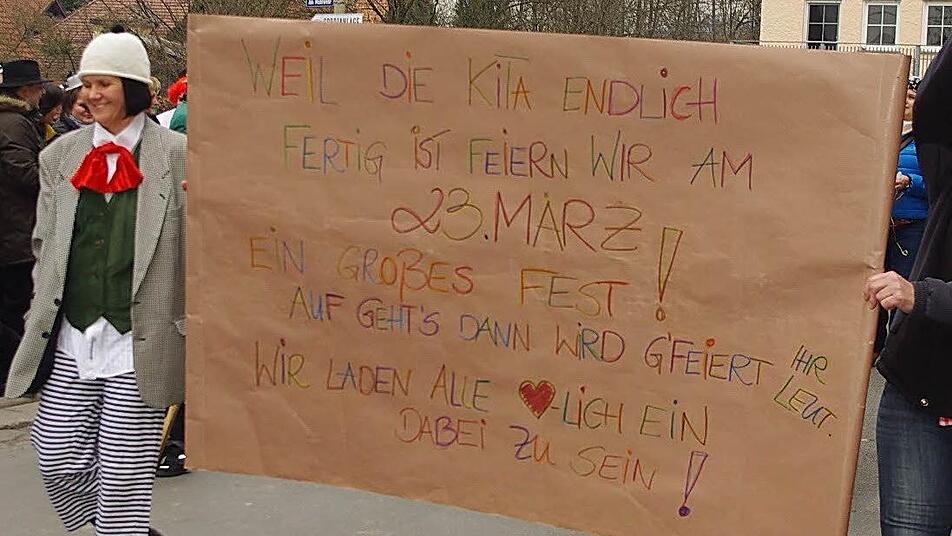 WEIL DIE KITA ENDLICH
FERTIG IST FEIERN WIR AM
23. MÄRZ!
EIN GROßES FEST!
AUF GEHT'S DANN WIRD G'FEIERT IHR LEUT.
WIR LADEN ALLE ♥-LICH EIN
DABEI ZU SEIN!